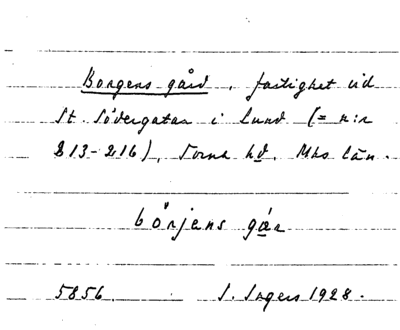 Borgens gård, fastighet vid
St. Södergatan i Lund (= n:r
213-216), Torna hd. Mhs län.
börjens gár
5856. S. Ingers 1928.